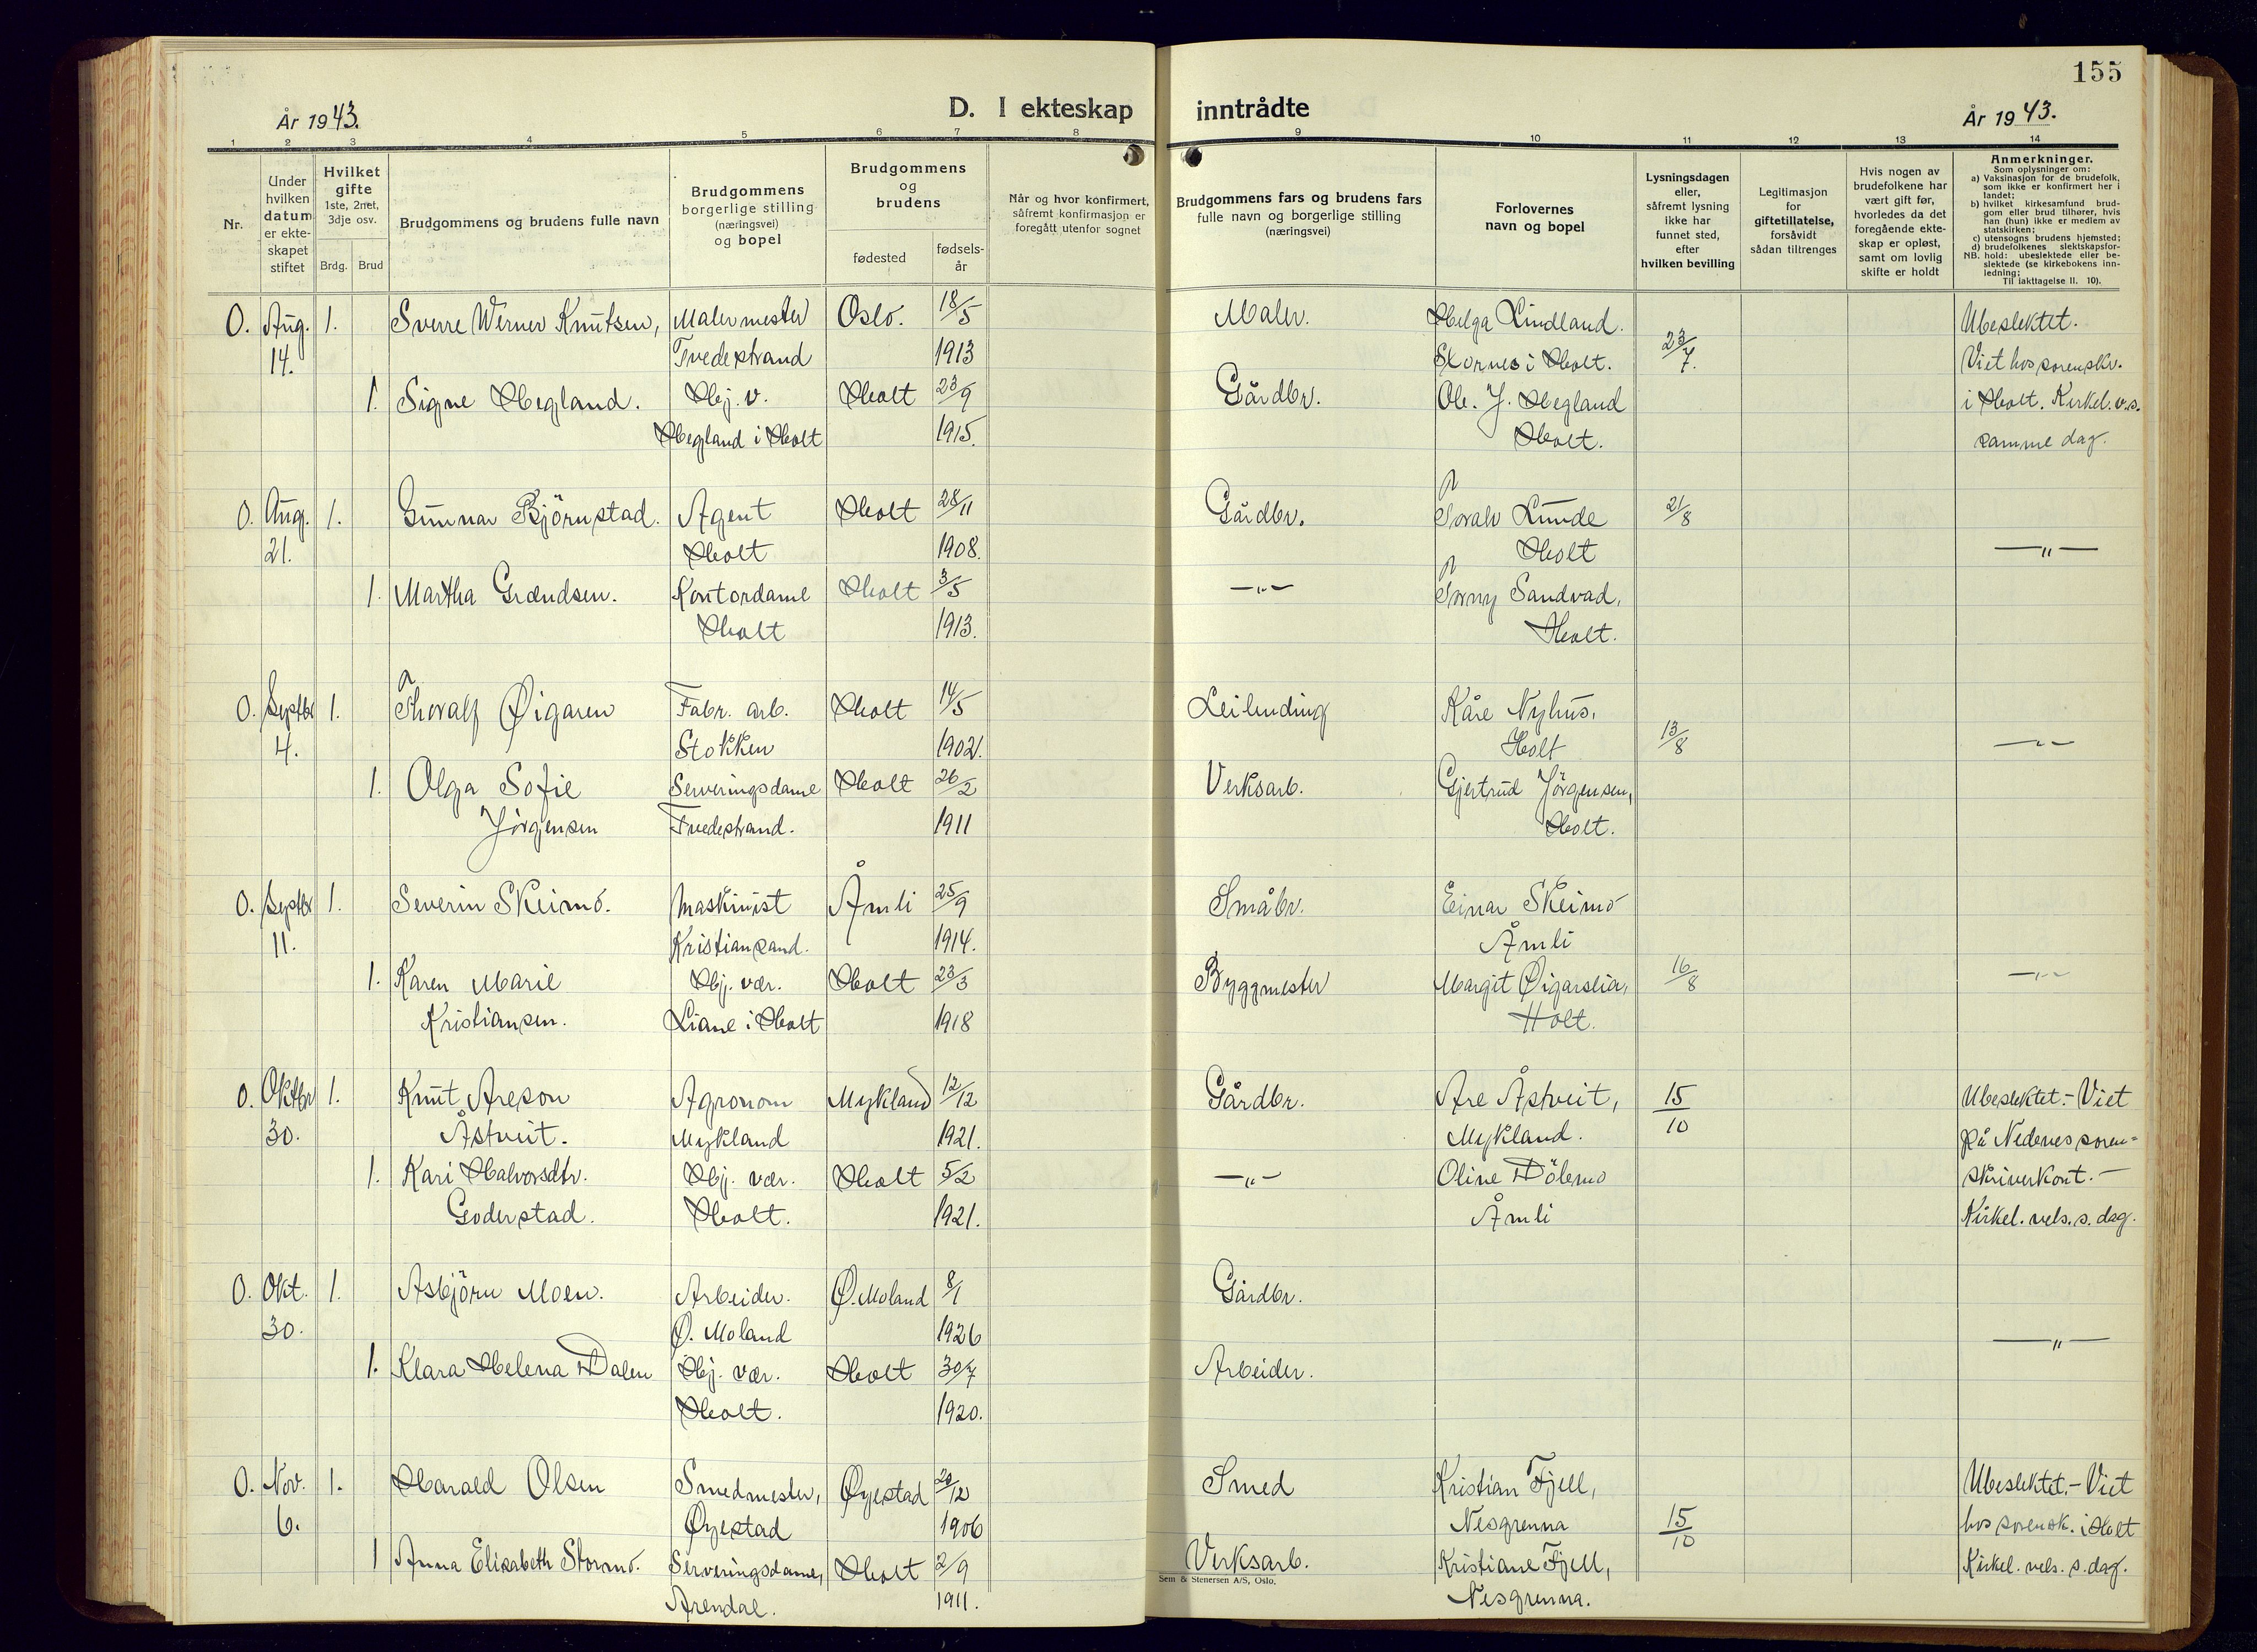 155
År 1943.
D. I ekteskap inntrådte
År 1943.
1 2 3 4 5 6 7 8 9 10 11 12 13 14
Nr.
Under hvilken datum er ekteskapet stiftet
Hvilket gifte 1ste, 2net, 3dje osv.
Brdg. Brud
Brudgommens og brudens fulle navn
Brudgommens borgerlige stilling (næringsvei) og bopel
Brudgommens og brudens
fødested
fødsels-år
Når og hvor konfirmert, såfremt konfirmasjon er foregått utenfor sognet
Brudgommens fars og brudens fars fulle navn og borgerlige stilling (næringsvei)
Forlovernes navn og bopel
Lysningsdagen eller, såfremt lysning ikke har funnet sted, efter hvilken bevilling
Legitimasjon for giftetillatelse, forsåvidt sådan tiltrenges
Hvis nogen av brudefolkene har vært gift før, hvorledes da det foregående ekteskap er opløst, samt om lovlig skifte er holdt
Anmerkninger.
Som oplysninger om:
a) Vaksinasjon for de brudefolk, som ikke er konfirmert her i landet;
b) hvilket kirkesamfund brudgom eller brud tilhører, hvis han (hun) ikke er medlem av statskirken;
c) utensogns brudens hjemsted;
d) brudefolkenes slektskapsforhold: ubeslektede eller beslektede (se kirkebokens innledning;
NB.
Til iakttagelse II. 10).
0. Aug. 1. Sverre Werner Knutsen, Malermester Oslo. 18/5 Maler. Helga Lindland. Ubeslektet.
14. Tvedestrand 1913 Skornes i Holt. 23/7. Viet hos sorenskr.
1. Signe Hegland. Hj. v. Holt 23/9 Gårdbr. Ole. J. Hegland i Holt. Kirkel. v.s.
Hegland i Holt 1915. Holt. samme dag.
0. Aug. 1. Gunnar Bjørnstad. Agent Holt 28/11 Gårdbr. Toralv Lunde 21/8
21. Holt 1908. Holt —"—
1. Martha Grændsen. Kontordame Holt 3/5 —"— Torny Sandvad,
Holt 1913. Holt.
0. Septbr 1. Thoralf Øigaren Fabr. arb. Holt 14/5 Leilending Kåre Nyhus,
4. Stokken 1902. Holt 13/8 —"—
1. Olga Sofie Serveringsdame Holt 26/2 Verksarb. Gjertrud Jørgensen,
Jørgensen Tvedestrand. 1911 Holt.
0. Septbr 1. Severin Skeimo. Maskinist Åmli 25/9 Småbr. Einar Skeimo
11. Kristiansand. 1914. Åmli
1. Karen Marie Hj. vær. Holt 23/3 Byggmester Margit Øigarslia, 16/8 —"—
Kristiansen. Liane i Holt 1918 Holt.
0. Oktbr 1. Knut Areson Agronom Mykland 12/12 Gårdbr. Are Åstveit, 15/10 Ubeslektet.- Viet
30. Åstveit. Mykland 1921. Mykland. på Nedenes soren=
1. Kari Halvorsdtr. Hj. vær. Holt 5/2 —"— Oline Dølemo skriverkont.-
Goderstad. Holt. 1921. Åmli Kirkel. vels. s. dag.
0. Okt. 1. Asbjørn Moen. Arbeider. Ø. Moland 8/1 Gårdbr.
30. Ø. Moland 1926 —"—
1. Klara Helena Dalen Hj. vær. Holt 30/7 Arbeider.
Holt. 1920.
0. Nov. 1. Harald Olsen Smedmester, Øyestad 20/12 Smed Kristian Fjell, Ubeslektet.- Viet
6. Øyestad 1906 Nesgrenna 15/10 hos sorensk. i Holt
1 Anna Elisabeth Stormo. Serveringsdame, Holt 2/9 Verksarb. Kristiane Fjell, Kirkel. vels. s. dag.
Arendal. 1911. Nesgrenna.
Sem & Stenersen A/S, Oslo.